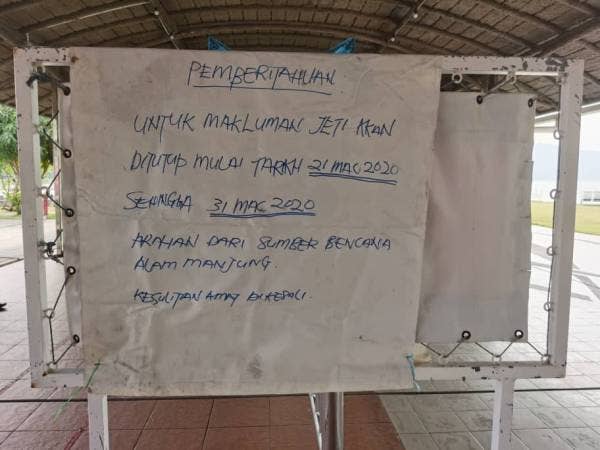 PEMBERITAHUAN
UNTUK MAKLUMAN JETI AKAN
DITUTUP MULAI TARIKH 21 MAC 2020
SEHINGGA 31 MAC 2020
ARAHAN DARI SUMBER BENCANA
ALAM MANJUNG.
KESULITAN AMAT DIKESALI.